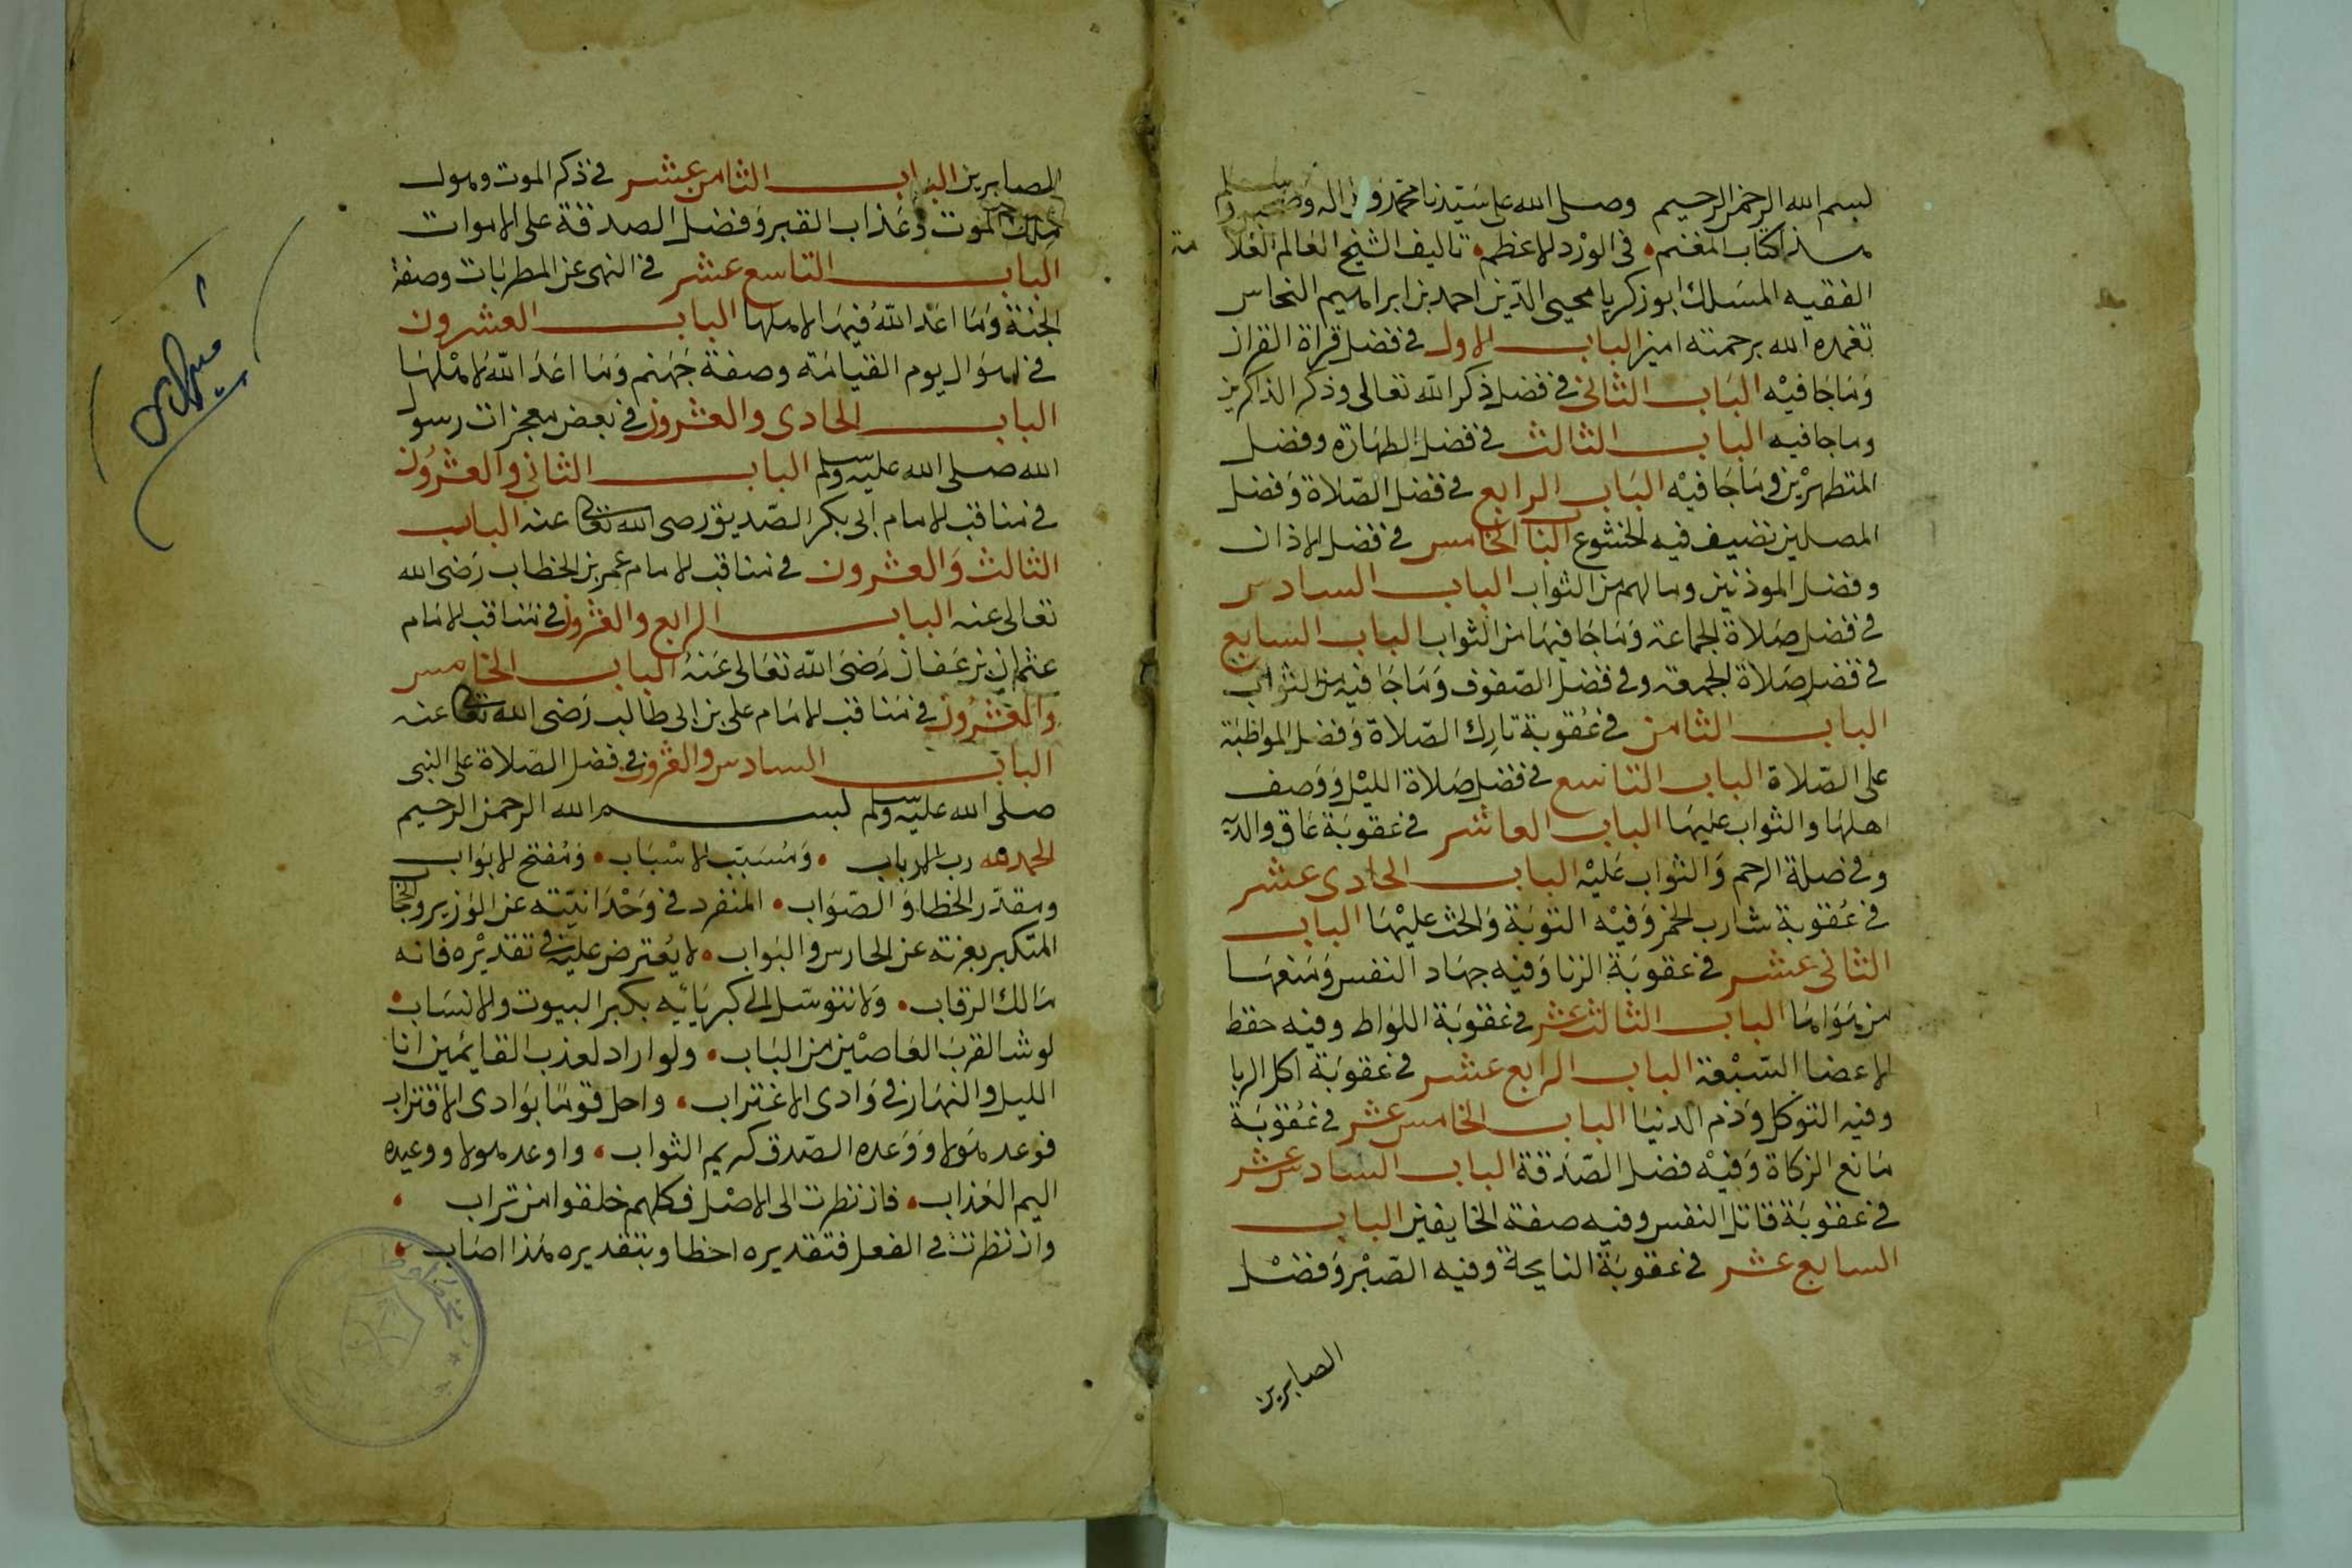 بسم الله الرحمن الرحيم وصلى الله على سيدنا محمد وعلى اله وصحبه وسلم
هذا كتاب المغنم في الورد الاعظم تاليف الشيخ العالم العلا مة
الفقيه المسلك ابو زكريا محيى الدين احمد بن ابراهيم النحاس
تغمده الله برحمته امين الباب الاول في فضل قراة القران
وما جا فيه الباب الثاني في فضل ذكر الله تعالى وذكر الذاكرين
وما جا فيه الباب الثالث في فضل الطهارة وفضل
المتطهرين وما جا فيه الباب الرابع في فضل الصلاة وفضل
المصلين نضيف فيه الخشوع البا الخامس في فضل الاذان
وفضل الموذنين وما لهم من الثواب الباب السادس
في فضل صلاة الجماعة وما جا فيها من الثواب الباب السابع
في فضل صلاة الجمعة وفي فضل الصفوف وما جا فيه من الثواب
الباب الثامن في عقوبة تارك الصلاة وفضل المواظبة
على الصلاة الباب التاسع في فضل صلاة الليل ووصف
اهلها والثواب عليها الباب العاشر في عقوبة عاق والديه
وفي صلة الرحم والثواب عليه الباب الحادى عشر
في عقوبة شارب الخمر وفيه التوبة والحث عليها الباب
الثانى عشر في عقوبة الزنا وفيه جهاد النفس ومنعها
من هواها الباب الثالث عشر في عقوبة اللواط وفيه حفظ
الاعضا السبعة الباب الرابع عشر في عقوبة اكل الربا
وفيه التوكل وذم الدنيا الباب الخامس عشر في عقوبة
مانع الزكاة وفيه فضل الصدقة الباب السادس عشر
في عقوبة قاتل النفس وفيه صفة الخايفين الباب
السابع عشر في عقوبة النايحة وفيه الصبر وفضل
الصابرين
الصابرين الباب الثامن عشر في ذكر الموت وهول
ملك الموت وعذاب القبر وفضل الصدقة على الاموات
الباب التاسع عشر في النهى عن المطربات وصفة
الجنة وما اعد الله فيها لاهلها الباب العشرون
في اهوال يوم القيامة وصفة جهنم وما اعد الله لاهلها
الباب الحادى والعشرون في بعض معجزات رسول
الله صلى الله عليه وسلم الباب الثاني والعشرون
في مناقب الامام ابى بكر الصديق رضى الله تعالى عنه الباب
الثالث والعشرون في مناقب الامام عمر بن الخطاب رضى الله
تعالى عنه الباب الرابع والعشرون في مناقب الامام
عثمان بن عفان رضى الله تعالى عنه الباب الخامس
والعشرون في مناقب الامام على بن ابى طالب رضى الله تعالى عنه
الباب السادس والعشرون في فضل الصلاة على النبى
صلى الله عليه وسلم بسم الله الرحمن الرحيم
الحمد لله رب الارباب ومسبب الاسباب ومفتح الابواب
ومقدر الخطا والصواب المنفرد في وحدانيته عن الوزير والحجا
المتكبر بعزته عن الحارس والبواب لا يعترض عليه في تقديره فانه
مالك الرقاب ولا نتوسل الى كبريائه بكبر البيوت والانساب
لو شا لقرب العاصين من الباب ولو اراد لعذب القايمين انا
الليل والنهار في وادى الاغتراب واحل قوما بوادى الاقتراب
فوعد هولا ووعده الصدق كريم الثواب واوعد هولا ووعيده
اليم العذاب فان نظرت الى الاصل فكلهم خلقوا من تراب
وان نظرت في الفعل فتقديره اخطا وبتقديره هذا اصاب